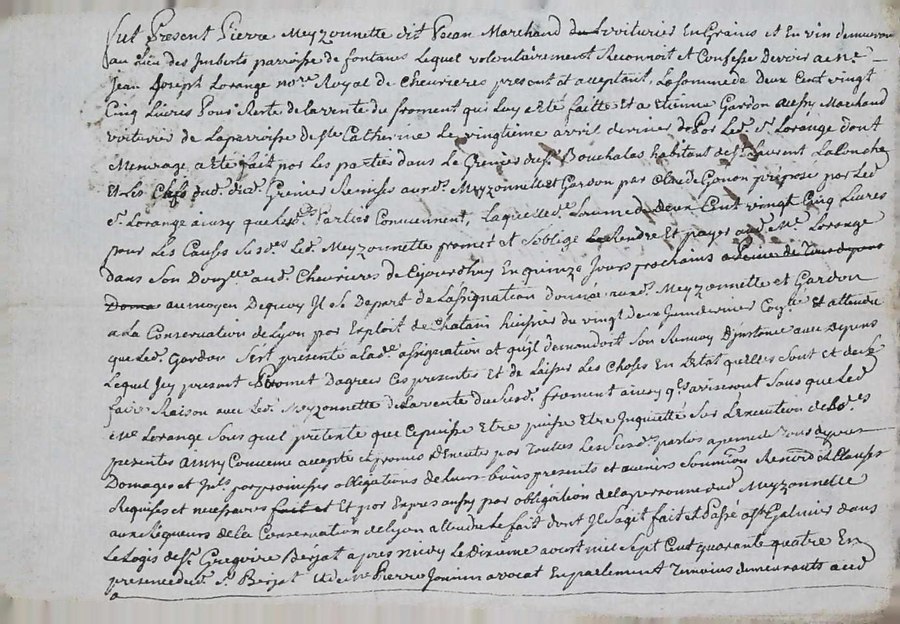 fut Present Pierre Meyzonnette dit Pecan Marchand du voituries En Grains et En vin demeurant
au lieu des Imberts parroisse de fontanes Lequel volontairement Reconnoit et Confesse Devoir a me
Jean Joseph Lorange nore Royal de Chevrieres present et acceptant, La somme de Deux Cent vingt
Cinq Livres Pour Reste de la vente du froment qui Luy a ete faitte Et a Etienne Gardon aussy Marchand
voiturier de La parroisse de Ste Catherine Le vingtieme avril dernier Par Led. Sr Lorange dont
Mesurage a ete fait par Les parties dans Le Grenier de Sr Bouchalas habitant de St Laurent La Conche
Et Les Clefs dud. dit Grenier Remises auxd. Meyzonnette et Gardon par Claude Gonon prepose par Led
Sr Lorange ainsy que Lesd. Parties Conviennent, Laquelle de Somme de deux Cent vingt Cinq Livres
pour Les Causes Susd. Led. Meyzonnette promet et s'oblige Rendre Et payer aud. Me Lorange
dans Son Domylle aud. Chevrieres de Cejourdhuy En quinze Jours prochains a peine de Tous depens
Domâ au moyen Dequoy Il se Depart de L'assignation donnée auxd. Meyzonnette et Gardon
a La Conservation de Lyon par Exploit de Chatain huissier du vingt deux Juin dernier Conlle Et attendu
que Led. Gardon S'est presenté a Lad. assignation et qu'il demandoit son Renvoy D'instance avec depens
Lequel Icy present Promet D'agreer Ces presentes Et de Laisser Les Choses En L'etat qu'elles Sont et de se
faire Raison avec Led. Meyzonnette de La vente du Susd. froment ainsy qls aviseront Sans que Led
Me Lorange Sous quel pretexte que Ce puisse Etre puisse Etre Inquietté Sur L'Execution des
presentes ainsy Convenu accepté et promis D'executer par Toutes Les Susd. parties a peine de Tous depens
Domages et Ints par promesses obligations de Leurs biens presents et avenirs Soumions Renons et Clauses
Requises et necessaires fait et Et par Expres aussy par obligation de La personne dud. Meyzonnette
aux Rigueurs de La Conservation de Lyon attendu Le fait dont Il S'agit fait et Passé a St Galmier dans
Le Logis de Sr Gregoire Berjat apres midy Le Dixieme aoust mil Sept Cent quarante quatre En
presence dud. Sr Berjat Et de me Pierre Jouvin avocat En parlement Temoins demeurants aud